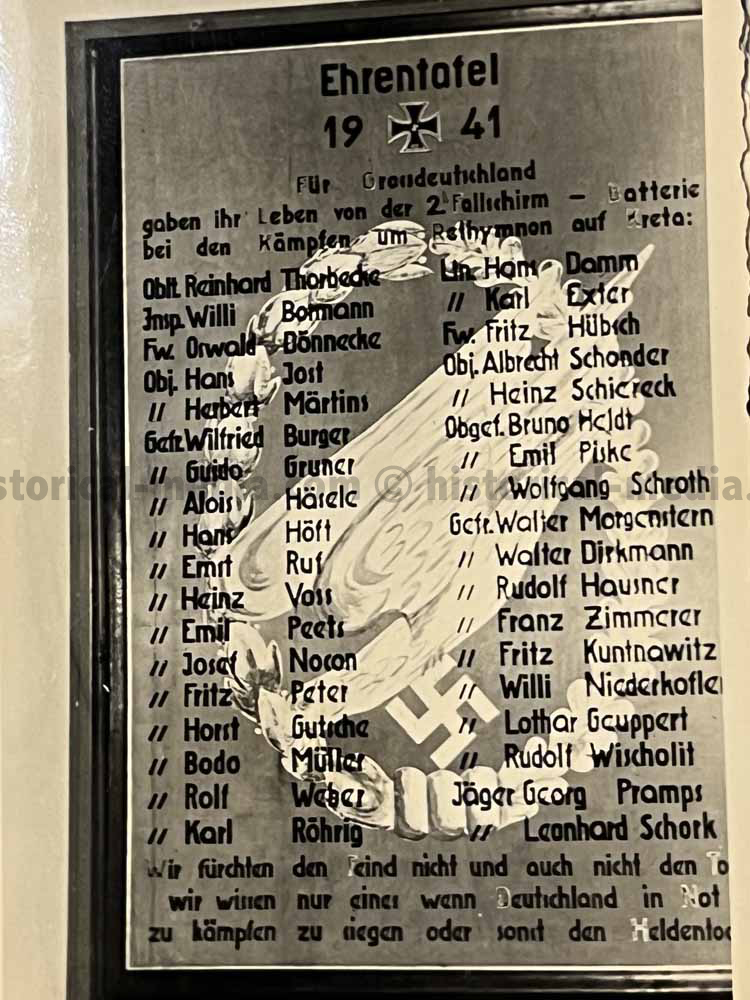 Ehrentafel
19 41
Für Grossdeutschland
gaben ihr Leben von der 2. Fallschirm - Batterie
bei den Kämpfen um Rethymnon auf Kreta:
Oblt. Reinhard Thorbecke Ltn. Hans Damm
Insp. Willi Botmann " Karl Exter
Fw. Oswald Dönnecke Fw. Fritz Hübsch
Obj. Hans Jost Obj. Albrecht Schonder
" Herbert Märtins " Heinz Schiereck
Gefr. Wilfried Burger Obgef. Bruno Heldt
" Guido Gruner " Emil Piske
" Alois Häsele " Wolfgang Schroth
" Hans Höft Gefr. Walter Morgenstern
" Ernst Ruf " Walter Dirkmann
" Heinz Voss " Rudolf Hausner
" Emil Peets " Franz Zimmerer
" Josef Nocon " Fritz Kuntnawitz
" Fritz Peter " Willi Niederkofler
" Horst Gutsche " Lothar Geuppert
" Bodo Müller " Rudolf Wischolit
" Rolf Weber Jäger Georg Pramps
" Karl Röhrig " Leonhard Schork
Wir fürchten den Feind nicht und auch nicht den To
wir wissen nur eines wenn Deutschland in Not
zu kämpfen zu siegen oder sonst den Heldentod
storical-media.com © historical-media.